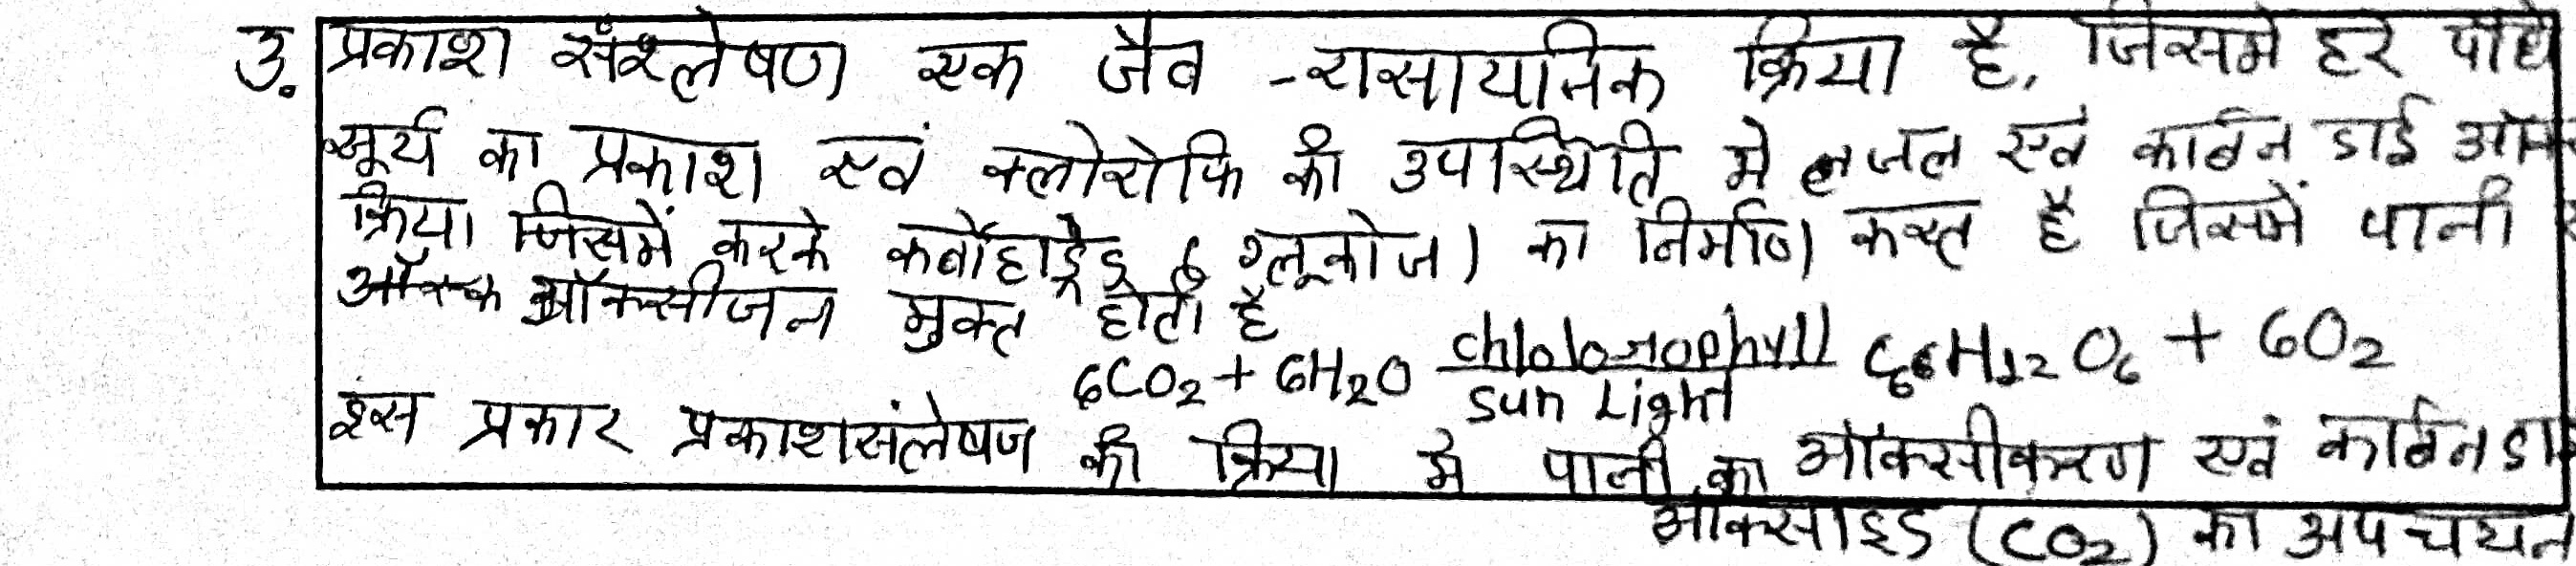 3. प्रकाश संश्लेषण एक जैव -रासायनिक क्रिया है, जिसमे हरे पौधे
सूर्य का प्रकाश एवं क्लोरोफि की उपस्थिति मे जल एवं कार्बन डाई
क्रिया जिसमें करके कर्बोहाड्रेड (ग्लूकोज) का निर्माण करत है जिसमें पानी
ऑक्सीजन मुक्त होती है
6CO₂ + 6H₂O chlolorophyll C₆H₁₂O₆ + 6O₂
sun Light
इस प्रकार प्रकाशसंलेषण की क्रिया मे पानी का ओक्सीकरण एवं कार्बन डा
ओक्साइड (CO₂) का अपचयन